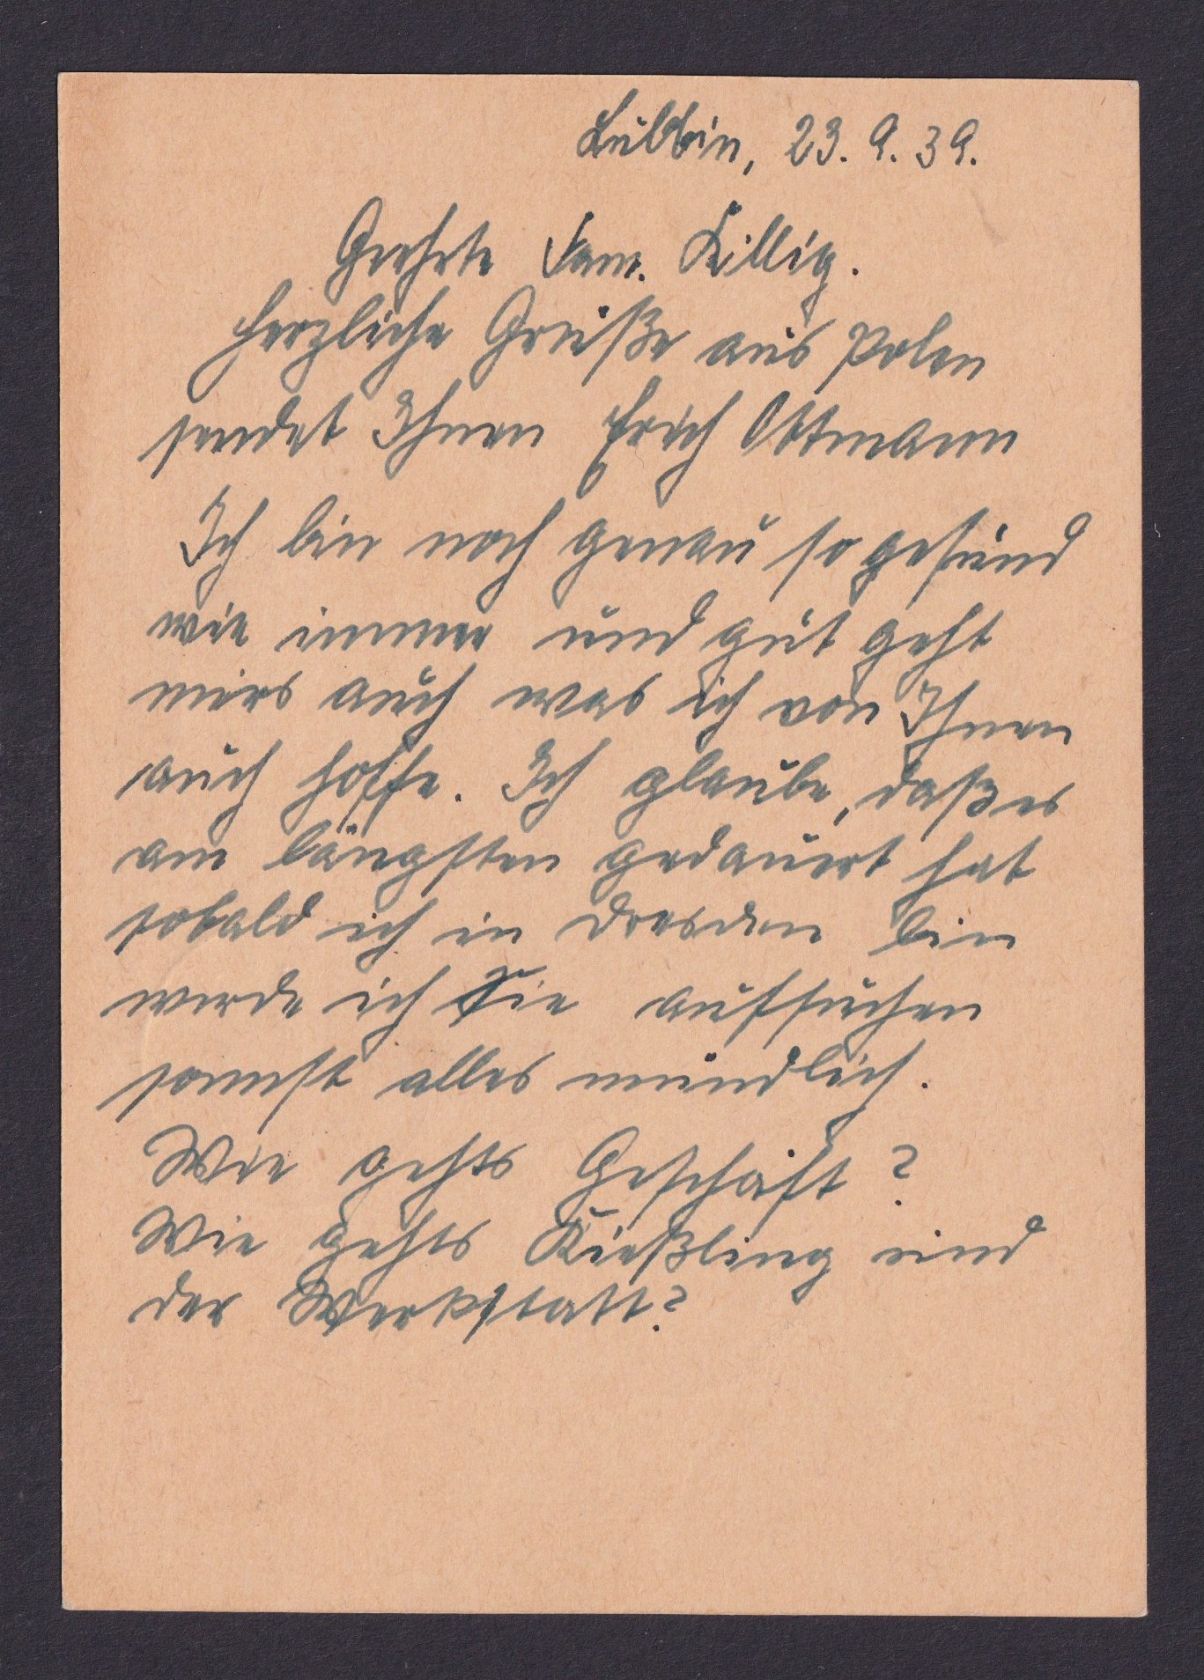 Lublin, 23. 9. 39.
Geehrte Fam. Killig.
Herzliche Grüße aus Polen
sendet Ihnen Erich Ottmann
Ich bin noch genau so gesund
wie immer und gut geht
mirs auch was ich von Ihnen
auch hoffe. Ich glaube, daß es
am längsten gedauert hat
sobald ich in Dresden bin
werde ich Sie aufsuchen
sonnst alles mündlich.
Wie gehts Geschäft?
Wie gehts Kießling und
der Werkstatt?